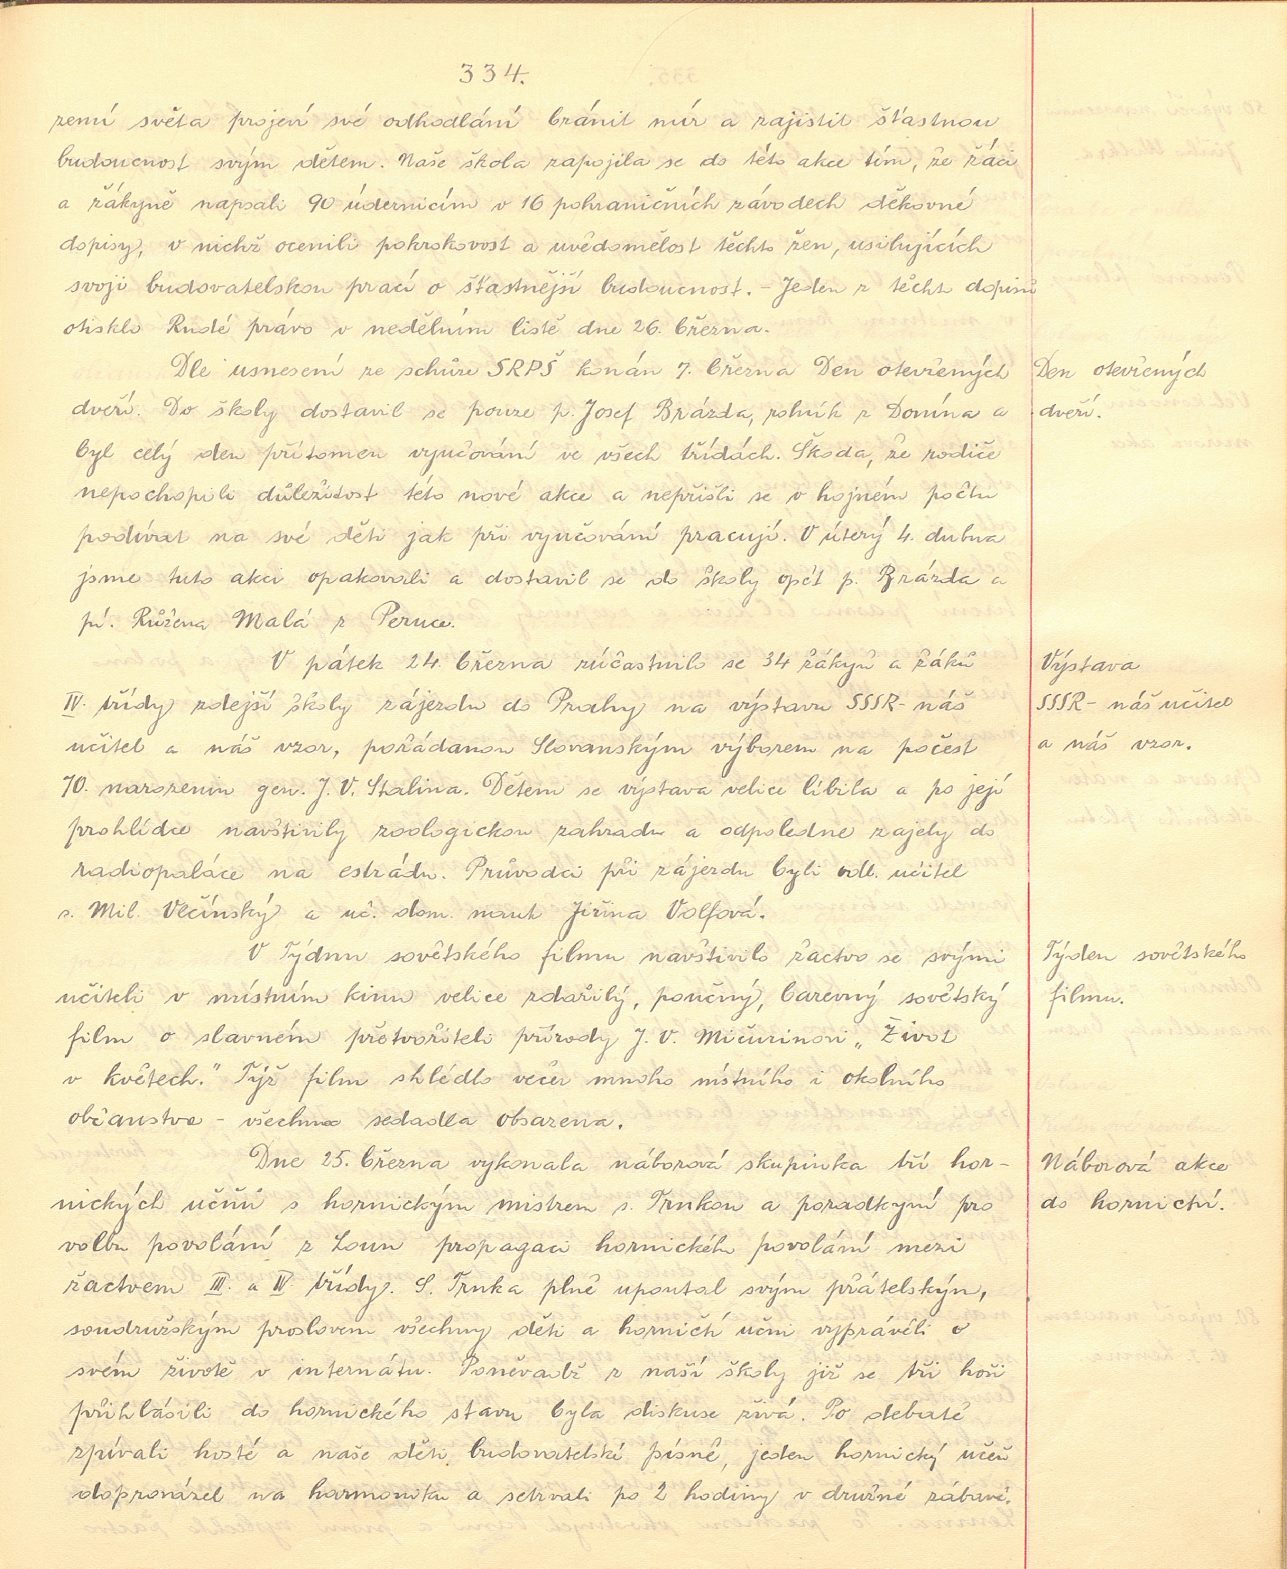 334.
zemí světa projeví své odhodlání bránit mír a zajistit šťastnou
budoucnost svým dětem. Naše škola zapojila se do této akce tím, že žáci
a žákyně napsali 90 údernicím v 16 pohraničních závodech děkovné
dopisy, v nichž ocenili pokrokovost a uvědomělost těchto žen, usilujících
svoji budovatelskou prací o šťastnější budoucnost. - Jeden z těchto dopisů
otisklo Rudé právo v nedělním listě dne 26. března.
Dle usnesení ze schůze SRPŠ konán 7. března Den otevřených
dveří. Do školy dostavil se pouze p. Josef Brázda, rolník z Donína a
byl celý den přítomen vyučování ve všech třídách. Škoda, že rodiče
nepochopili důležitost této nové akce a nepřišli se v hojném počtu
podívat na své děti jak při vyučování pracují. V úterý 4. dubna
jsme tuto akci opakovali a dostavil se do školy opět p. Brázda a
pí. Růžena Malá z Peruce.
Den otevřených
dveří.
V pátek 24. března zúčastnilo se 34 žákyň a žáků
IV. třídy zdejší školy zájezdu do Prahy na výstavu SSSR - náš
učitel a náš vzor, pořádanou Slovanským výborem na počest
70. narozenin gen. J. V. Stalina. Dětem se výstava velice líbila a po její
prohlídce navštívily zoologickou zahradu a odpoledne zajely do
radiopaláce na estrádu. Průvodci při zájezdu byli odb. učitel
s. Mil. Vlčínský a uč. dom. nauk Jiřina Volfová.
Výstava
SSSR - náš učitel
a náš vzor.
V Týdnu sovětského filmu navštívilo žactvo se svými
učiteli v místním kinu velice zdařilý, poučný, barevný sovětský
film o slavném přetvořiteli přírody J. V. Mičurinovi „Život
v květech." Týž film shlédlo večer mnoho místního i okolního
občanstva - všechna sedadla obsazena.
Týden sovětského
filmu.
Dne 25. března vykonala náborová skupinka tří hor-
nických učňů s hornickým mistrem s. Trnkou a poradkyní pro
volbu povolání z Loun propagaci hornického povolání mezi
žactvem III. a IV. třídy. S. Trnka plně upoutal svým přátelským,
soudružským proslovem všechny děti a horničtí učni vyprávěli o
svém životě v internátu. Poněvadž z naší školy již se tři hoši
přihlásili do hornického stavu byla diskuse živá. Po debatě
zpívali hosté a naše děti budovatelské písně, jeden hornický učeň
doprovázel na harmoniku a setrvali po 2 hodiny v družné zábavě.
Náborová akce
do hornictví.